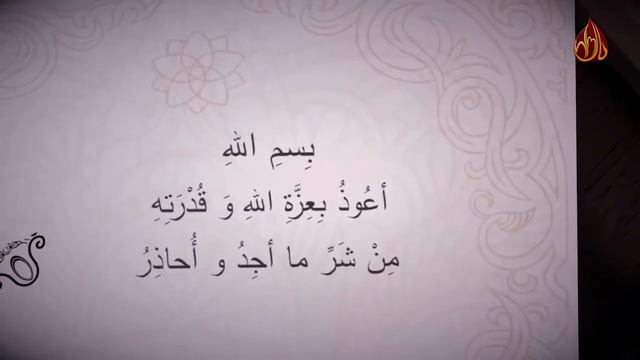 بِسمِ اللهِ
أعُوذُ بِعِزَّةِ اللهِ وَ قُدْرَتِهِ
مِنْ شَرِّ ما أجِدُ و أُحاذِرُ